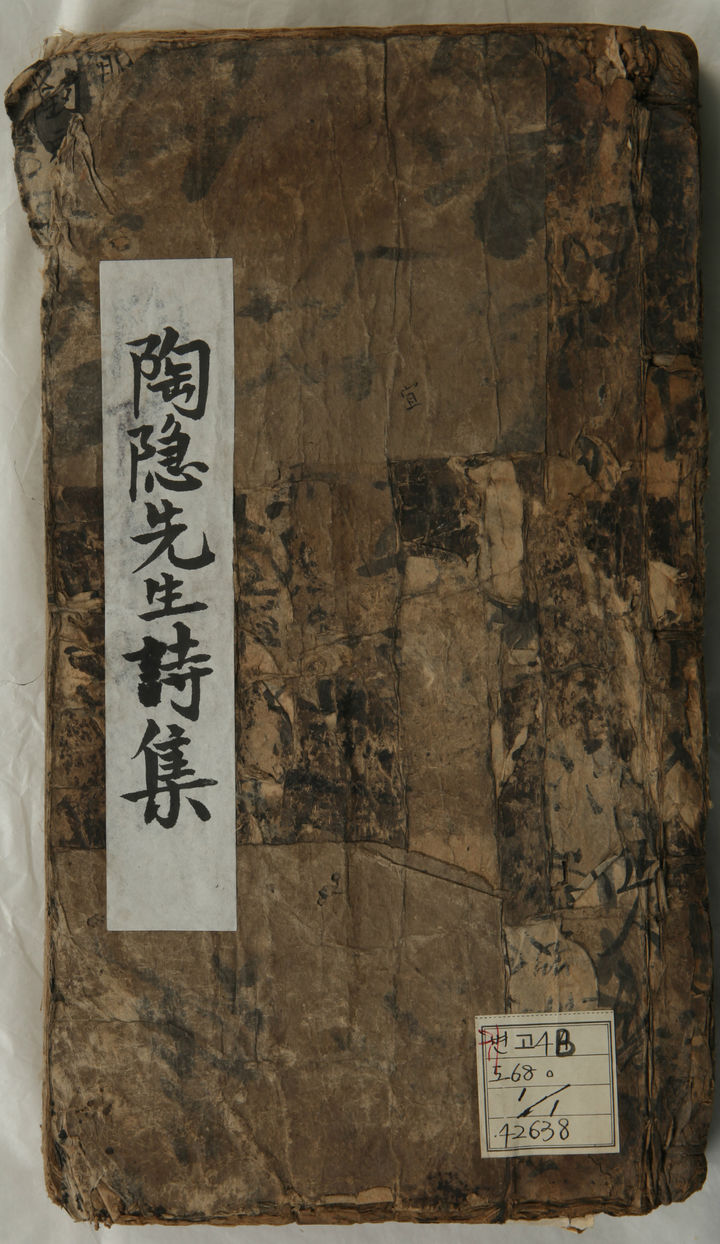 陶隐先生詩集
宣
고4B
5680
1/1
42638